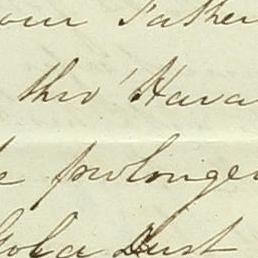 our Father
thro' Hava
prolonge
Dust